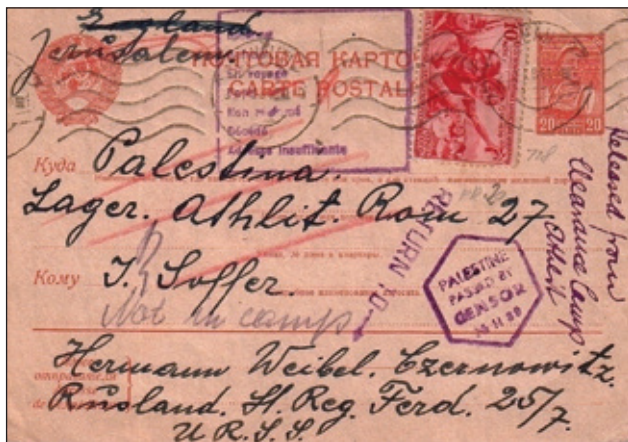 England.
Jerusalem
ПОЧТОВАЯ КАРТОЧКА
CARTE POSTALE
En voyage
Non réclamé
Décédé
Adresse insuffisante
10
20 20
Куда Palestina.
Lager. Athlit. Rom 27
Кому I. Soffer.
Not in camp
RETURN TO
PALESTINE
PASSED BY
CENSOR
Released from
Clearance Camp
Athlit
Hermann Weibel. Czernowitz.
Rusland. St. Reg. Ferd. 25/7.
U R.S.S.